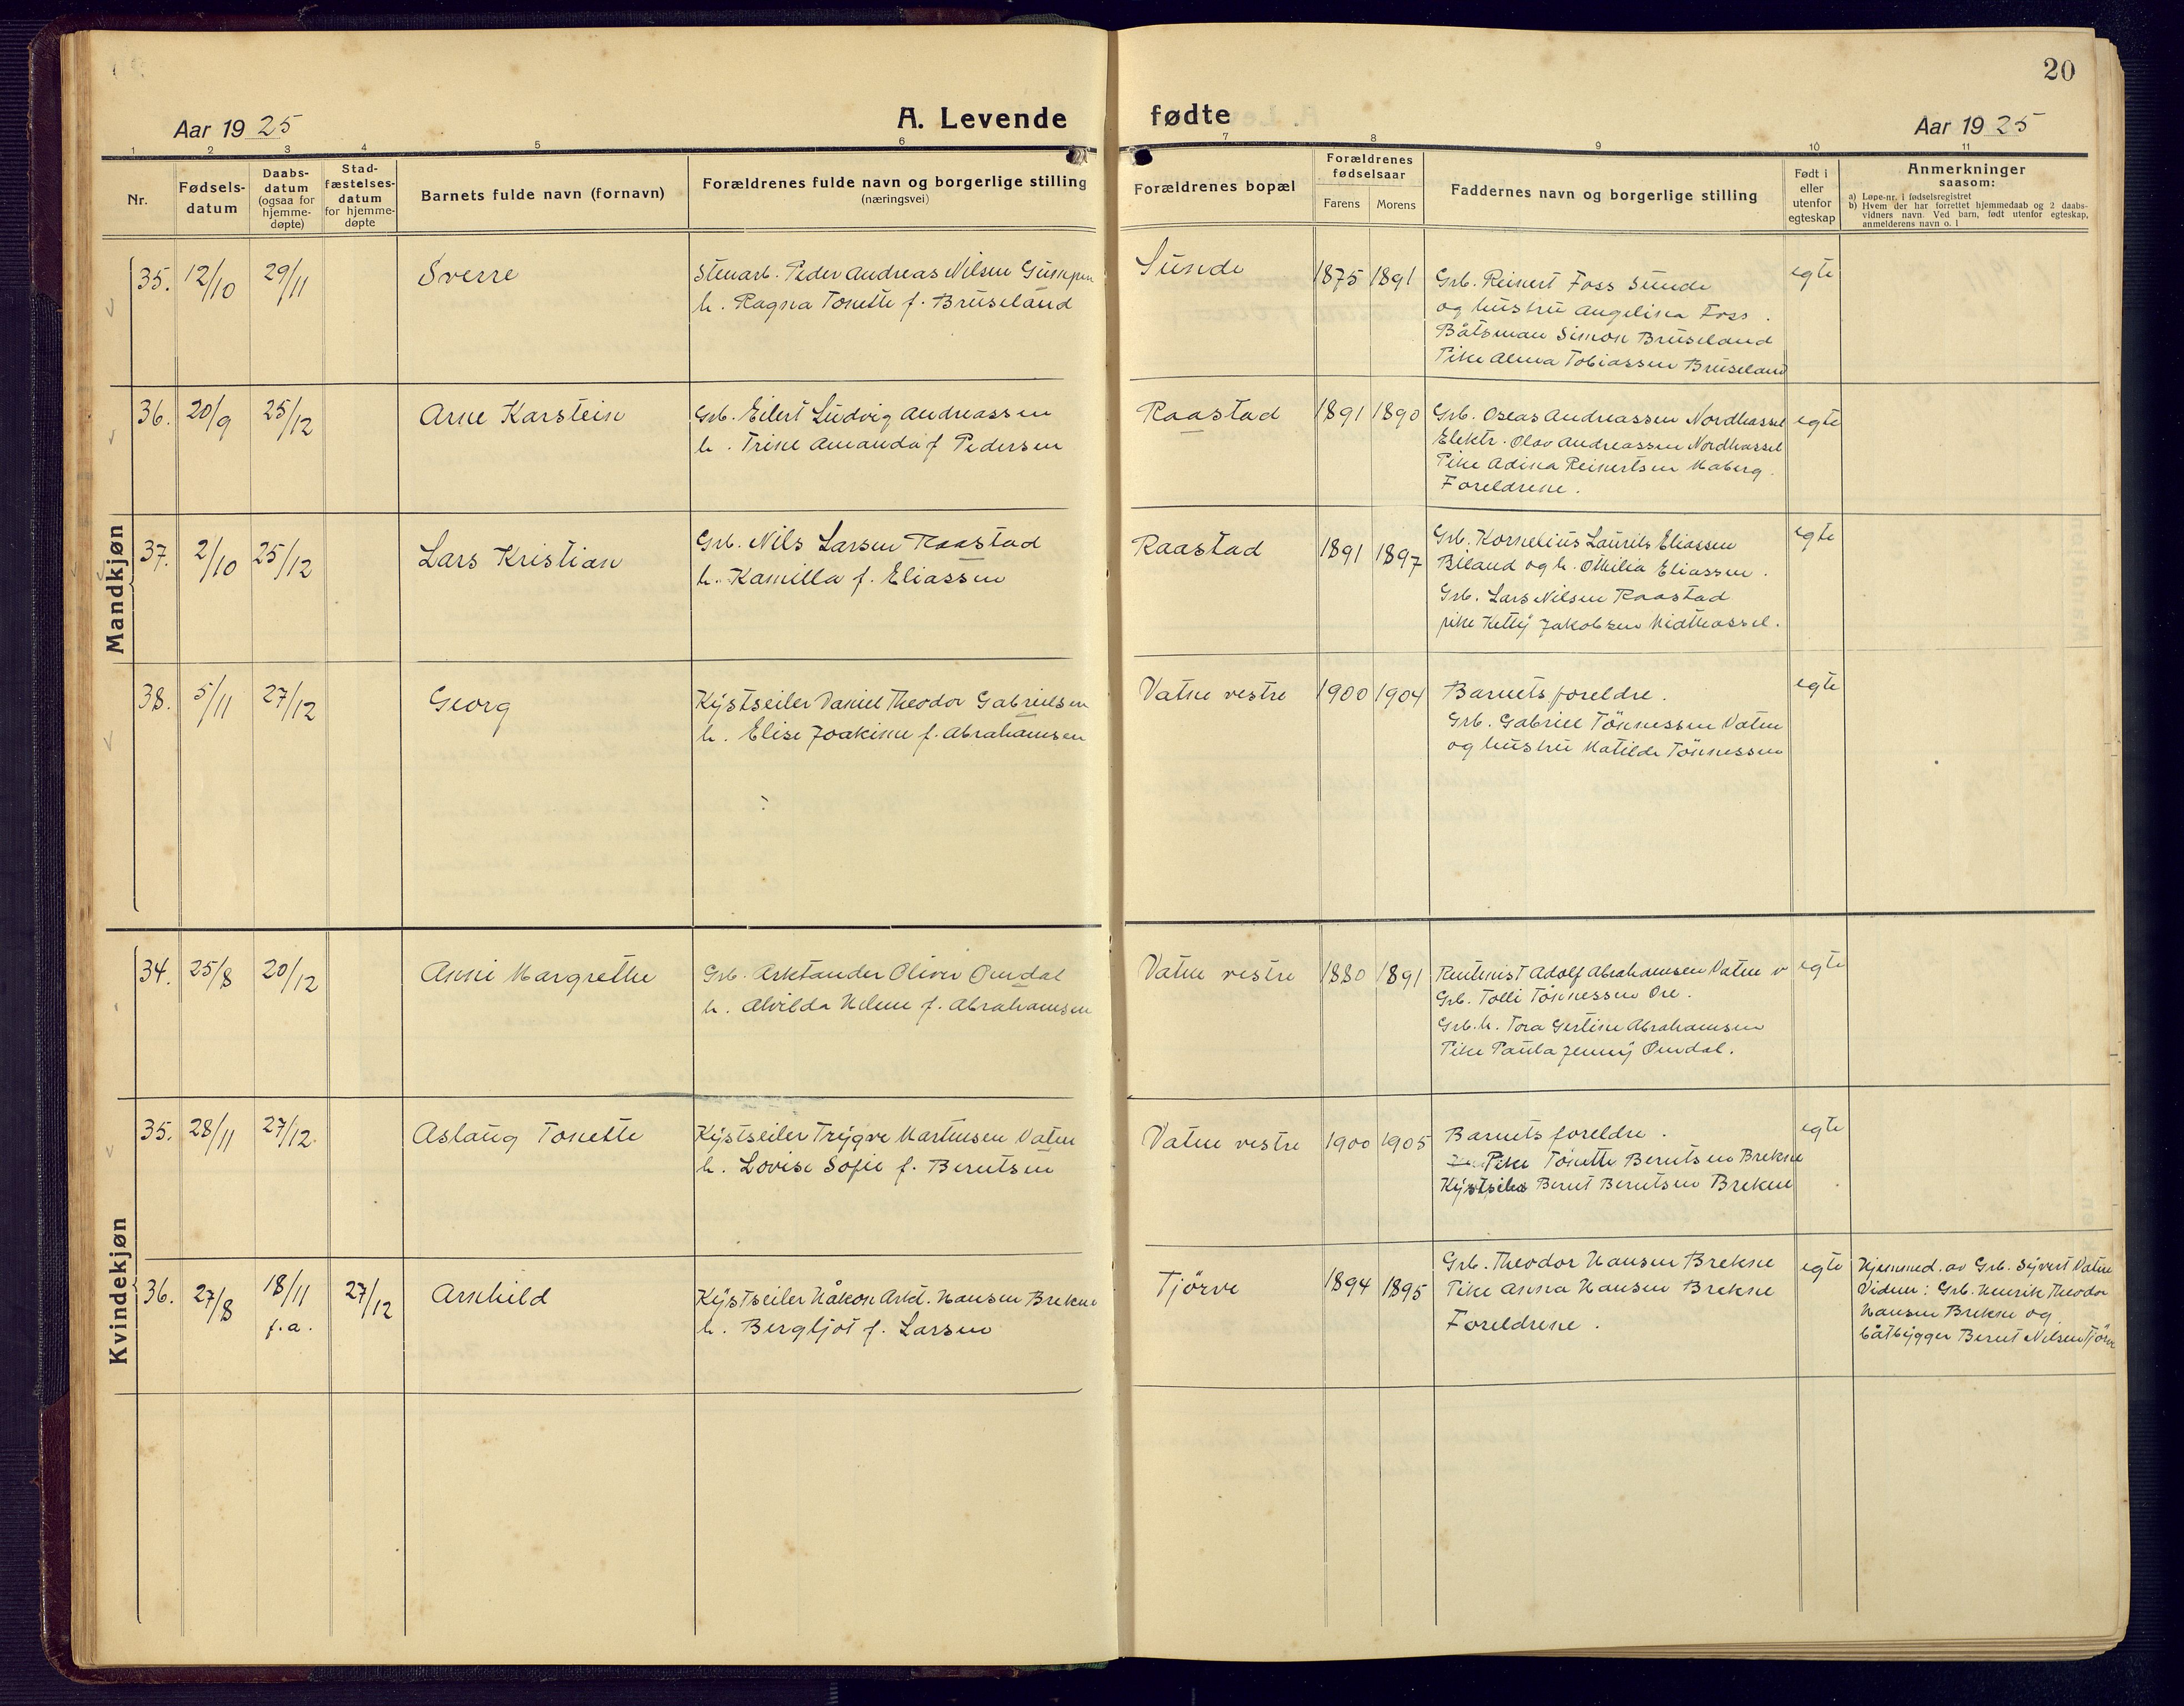 20
Aar 1925
A. Levende
fødte
Aar 1925
1 2 3 4 5 6 7 8 9 10 11
Nr.
Fødsels-
datum
Daabs-
datum
(ogsaa for
hjemme-
døpte)
Stad-
fæstelses-
datum
for hjemme-
døpte
Barnets fulde navn (fornavn)
Forældrenes fulde navn og borgerlige stilling
(næringsvei)
Forældrenes bopæl
Forældrenes
fødselsaar
Farens Morens
Faddernes navn og borgerlige stilling
Født i
eller
utenfor
egteskap
Anmerkninger
saasom:
a) Løpe-nr. i fødselsregistret
b) Hvem der har forrettet hjemmedaab og 2 daabs-
vidners navn. Ved barn, født utenfor egteskap,
anmelderens navn o. l
Mandkjøn
35. 12/10 29/11
Sverre
Stenarb. Peder Andreas Nilsen Gumpen
h. Ragna Tonette f. Bruseland
Sunde
1875 1891
Grb. Reinert Foss Sunde
og hustru Angelina Foss.
Båtsman Simon Bruseland
Pike Alma Tobiassen Bruseland
egte
36. 20/9 25/12
Arne Karstein
Grb. Eilert Ludvig Andreassen
h. Trine Amanda f Pedersen
Raastad
1891 1890
Grb. Oseas Andreassen Nordhassel
Elektr. Olav Andreassen Nordhassel
Pike Adina Reinertsen Maberg.
Foreldrene.
egte
37. 2/10 25/12
Lars Kristian
Grb. Nils Larsen Raastad
h. Kamilla f. Eliassen
Raastad
1891 1897
Grb. Kornelius Laurits Eliassen
Biland og h. Othilia Eliassen.
Grb. Lars Nilsen Raastad
pike Ketty Jakobsen Midthassel.
egte
38. 5/11 27/12
Georg
Kystseiler Daniel Theodor Gabrielsen
h. Elise Joakime f. Abrahamsen
Vatne vestre
1900 1904
Barnets foreldre.
Grb. Gabriel Tönnessen Vatne
og hustru Matilde Tönnessen
egte
Kvindekjøn
34. 25/8 20/12
Anni Margrethe
Grb. Arktander Oliver Omdal
h. Alvilda Helene f. Abrahamsen
Vatne vestre
1880 1891
Rentenist Adolf Abrahamsen Vatne v
Grb. Tolli Tönnessen Ore.
Grb.h. Tora Gertine Abrahamsen
Pike Paula Jenny Omdal.
egte
35. 28/11 27/12.
Aslaug Tonette
Kystseiler Trygve Martensen Vatne
h. Lovise Sofie f. Berntsen
Vatne vestre
1900 1905
Barnets foreldre.
Pike Tonette Berntsen Brekne
Kystseiler Bernt Berntsen Brekne
egte
36. 27/8 18/11 27/12
f.a.
Arnhild
Kystseiler Håkon Arkt. Hansen Brekne
h. Bergljot f. Larsen
Tjörve
1894 1895
Grb. Theodor Hansen Brekne
Pike Anna Hansen Brekne
Foreldrene.
egte
Hjemmed. av Grb. Syvert Vatne
Vidner: Grb. Henrik Theodor
Hansen Brekne og
båtbygger Bernt Nilsen Tjörve